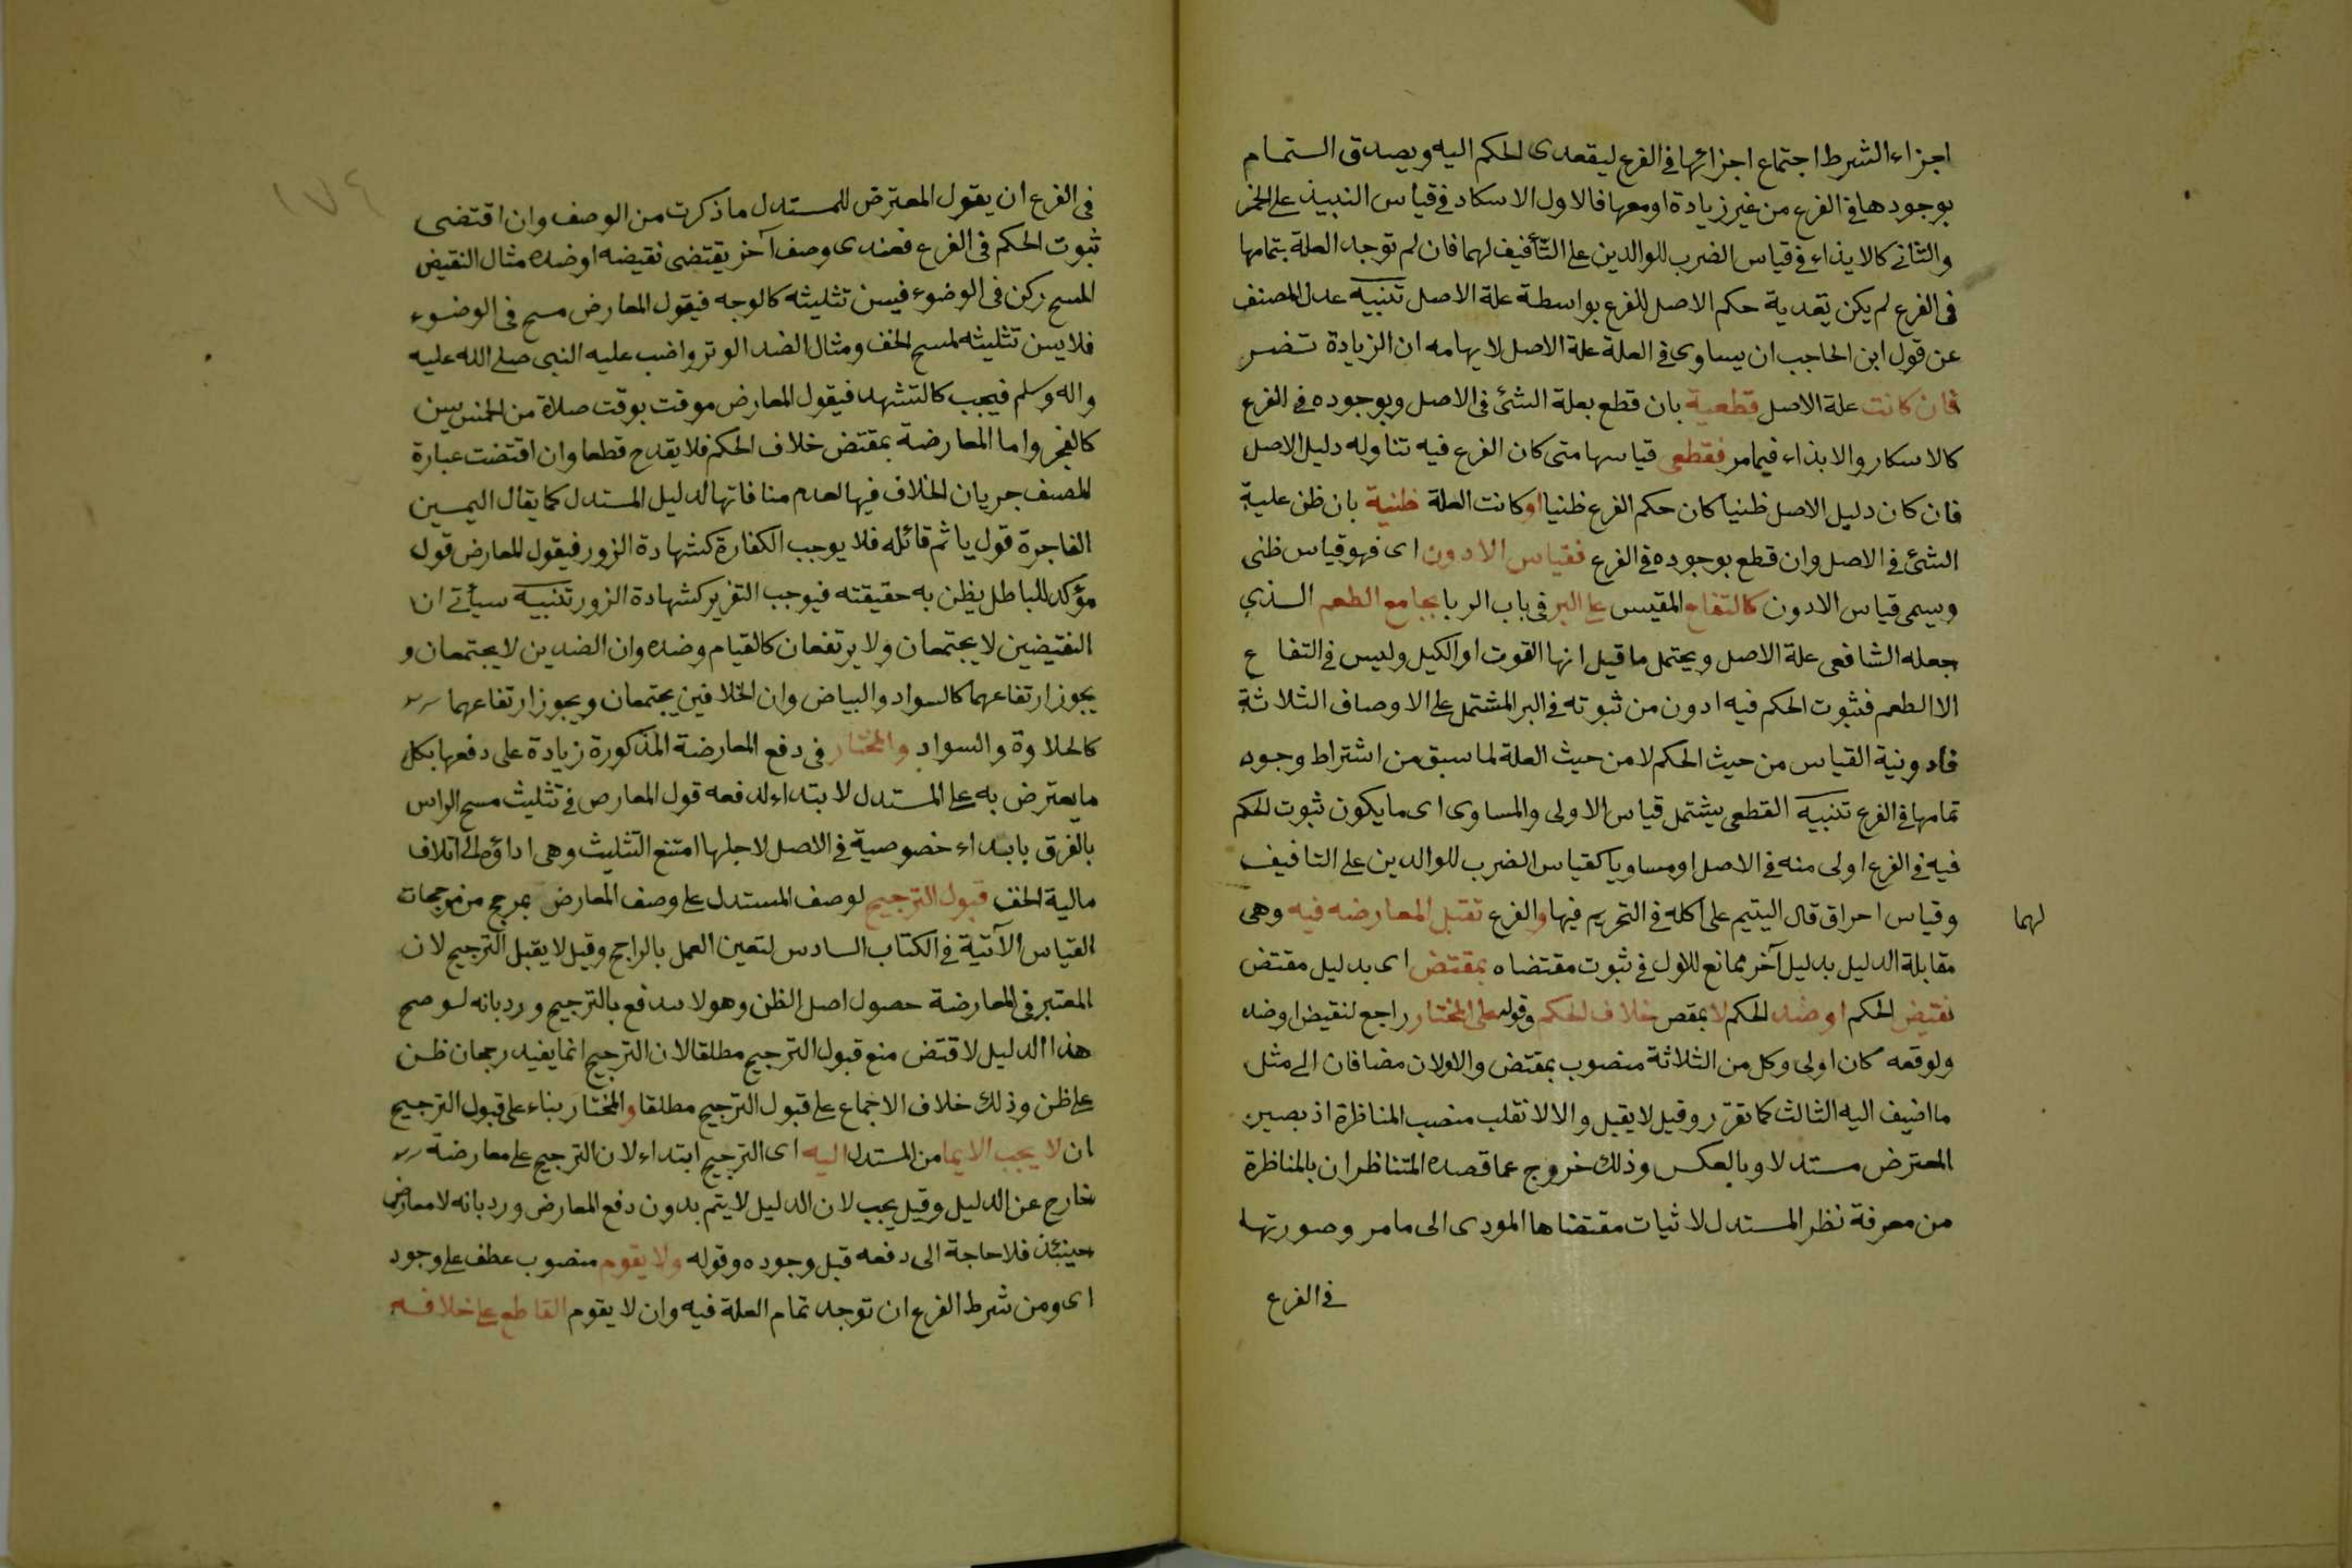 اجزاء الشرط اجتماع اجزائها فى الفرع ليتعدى الحكم اليه ويصدق التمام
بوجودها فى الفرع من غير زيادة او معها فالاول الاسكار فى قياس النبيذ على الخمر
والثانى كالايذاء فى قياس الضرب للوالدين على التأفيف لهما فان لم توجد العلة بتمامها
فى الفرع لم يكن تعدية حكم الاصل للفرع بواسطة علة الاصل تنبيه عدل المصنف
عن قول ابن الحاجب ان يساوى فى العلة علة الاصل لايهامه ان الزيادة تضر
فان كانت علة الاصل قطعية بان قطع بعلة الشئ فى الاصل وبوجوده فى الفرع
كالاسكار والايذاء فيما مر فقطعى قياسها متى كان الفرع فيه تناوله دليل الاصل
فان كان دليل الاصل ظنيا كان حكم الفرع ظنيا او كانت العلة ظنية بان ظن علية
الشئ فى الاصل وان قطع بوجوده فى الفرع فقياس الادون اى فهو قياس ظنى
ويسمى قياس الادون كالتفاح المقيس على البر فى باب الربا بجامع الطعم الذي
جعله الشافعى علة الاصل ويحتمل ما قيل انها القوت او الكيل وليس فى التفاح
الا الطعم فثبوت الحكم فيه ادون من ثبوته فى البر المشتمل على الاوصاف الثلاثة
فادونية القياس من حيث الحكم لا من حيث العلة لما سبق من اشتراط وجود
تمامها فى الفرع تنبيه القطعى يشتمل قياس الاولى والمساوى اى ما يكون ثبوت الحكم
فيه فى الفرع اولى منه فى الاصل او مساويا كقياس الضرب للوالدين على التافيف
لهما
وقياس احراق قال اليتيم على اكله فى التحريم فيها والفرع تقبل المعارضه فيه وهى
مقابلة الدليل بدليل آخر ممانع للاول فى ثبوت مقتضاه بمقتض اى بدليل مقتض
نقيض الحكم او ضد الحكم لا بمقص خلاف الحكم وقوله على المختار راجع لنقيض اوضد
ولوقعه كان اولى وكل من الثلاثة منصوب بمقتض والاولان مضافان الى مثل
ما اضيف اليه الثالث كما تقرر وقيل لا يقبل والا لانقلب منصب المناظرة اذ يصير
المعترض مستدلا وبالعكس وذلك خروج عما قصده المتناظران بالمناظرة
من معرفة نظر المستدل لاثيات مقتضاها المودى الى ما مر وصورتها
فى الفرع
١٧٤
فى الفرع ان يقول المعترض للمستدل ما ذكرت من الوصف وان اقتضى
ثبوت الحكم فى الفرع فعندى وصف آخر يقتضى نقيضه او ضده مثال النقيض
المسح ركن فى الوضوء فيسن تثليثه كالوجه فيقول المعارض مسح فى الوضوء
فلا يسن تثليثه لمسح الخف ومثال الضد الوتر واضب عليه النبى صلى الله عليه
واله وسلم فيجب كالتشهد فيقول المعارض موقت بوقت صلاة من الخمس يسن
كالفجر واما المعارضة بمقتض خلاف الحكم فلا يقدح قطعا وان اقتضت عبارة
المصنف جريان الخلاف فيها لعدم منافاتها لدليل المستدل كما يقال اليمين
الفاجرة قول ياثم قائله فلا يوجب الكفارة كشهادة الزور فيقول المعارض قول
مؤكد للباطل يظن به حقيقته فيوجب التعزير كشهادة الزور تنبيه سيأتى ان
النقيضين لا يجتمعان ولا يرتفعان كالقيام وضده وان الضدين لا يجتمعان و
يجوز ارتفاعهما كالسواد والبياض وان الخلافين يجتمعان ويجوز ارتفاعهما
كالحلاوة والسواد والمختار فى دفع المعارضة المذكورة زيادة على دفعها بكل
ما يعترض به على المستدل لابتداء لدفعه قول المعارض فى تثليث مسح الراس
بالفرق بابداء خصوصية فى الاصل لاجلها امتنع التثليث وهى اداؤه الى اتلاف
مالية الخف قبول الترجيح لوصف المستدل على وصف المعارض بمرجح من مرجحات
القياس الآتية فى الكتاب السادس لتعين العمل بالراجح وقيل لا يقبل الترجيح لان
المعتبر فى المعارضة حصول اصل الظن وهو لا يندفع بالترجيح ورد بانه لو صح
هذا الدليل لاقتض منع قبول الترجيح مطلقا لان الترجيح انما يفيد رجحان ظن
على ظن وذلك خلاف الاجماع على قبول الترجيح مطلقا والمختار بناء على قبول الترجيح
ان لا يجب الايما من المستدل اليه اى الترجيح ابتداء لان الترجيح على معارضة
خارج عن الدليل وقيل يجب لان الدليل لا يتم بدون دفع المعارض ورد بانه لا معارض
حينئذ فلا حاجة الى دفعه قبل وجوده وقوله ولا يقوم منصوب عطف على وجود
اى ومن شرط الفرع ان توجد تمام العلة فيه وان لا يقوم القاطع على خلافه